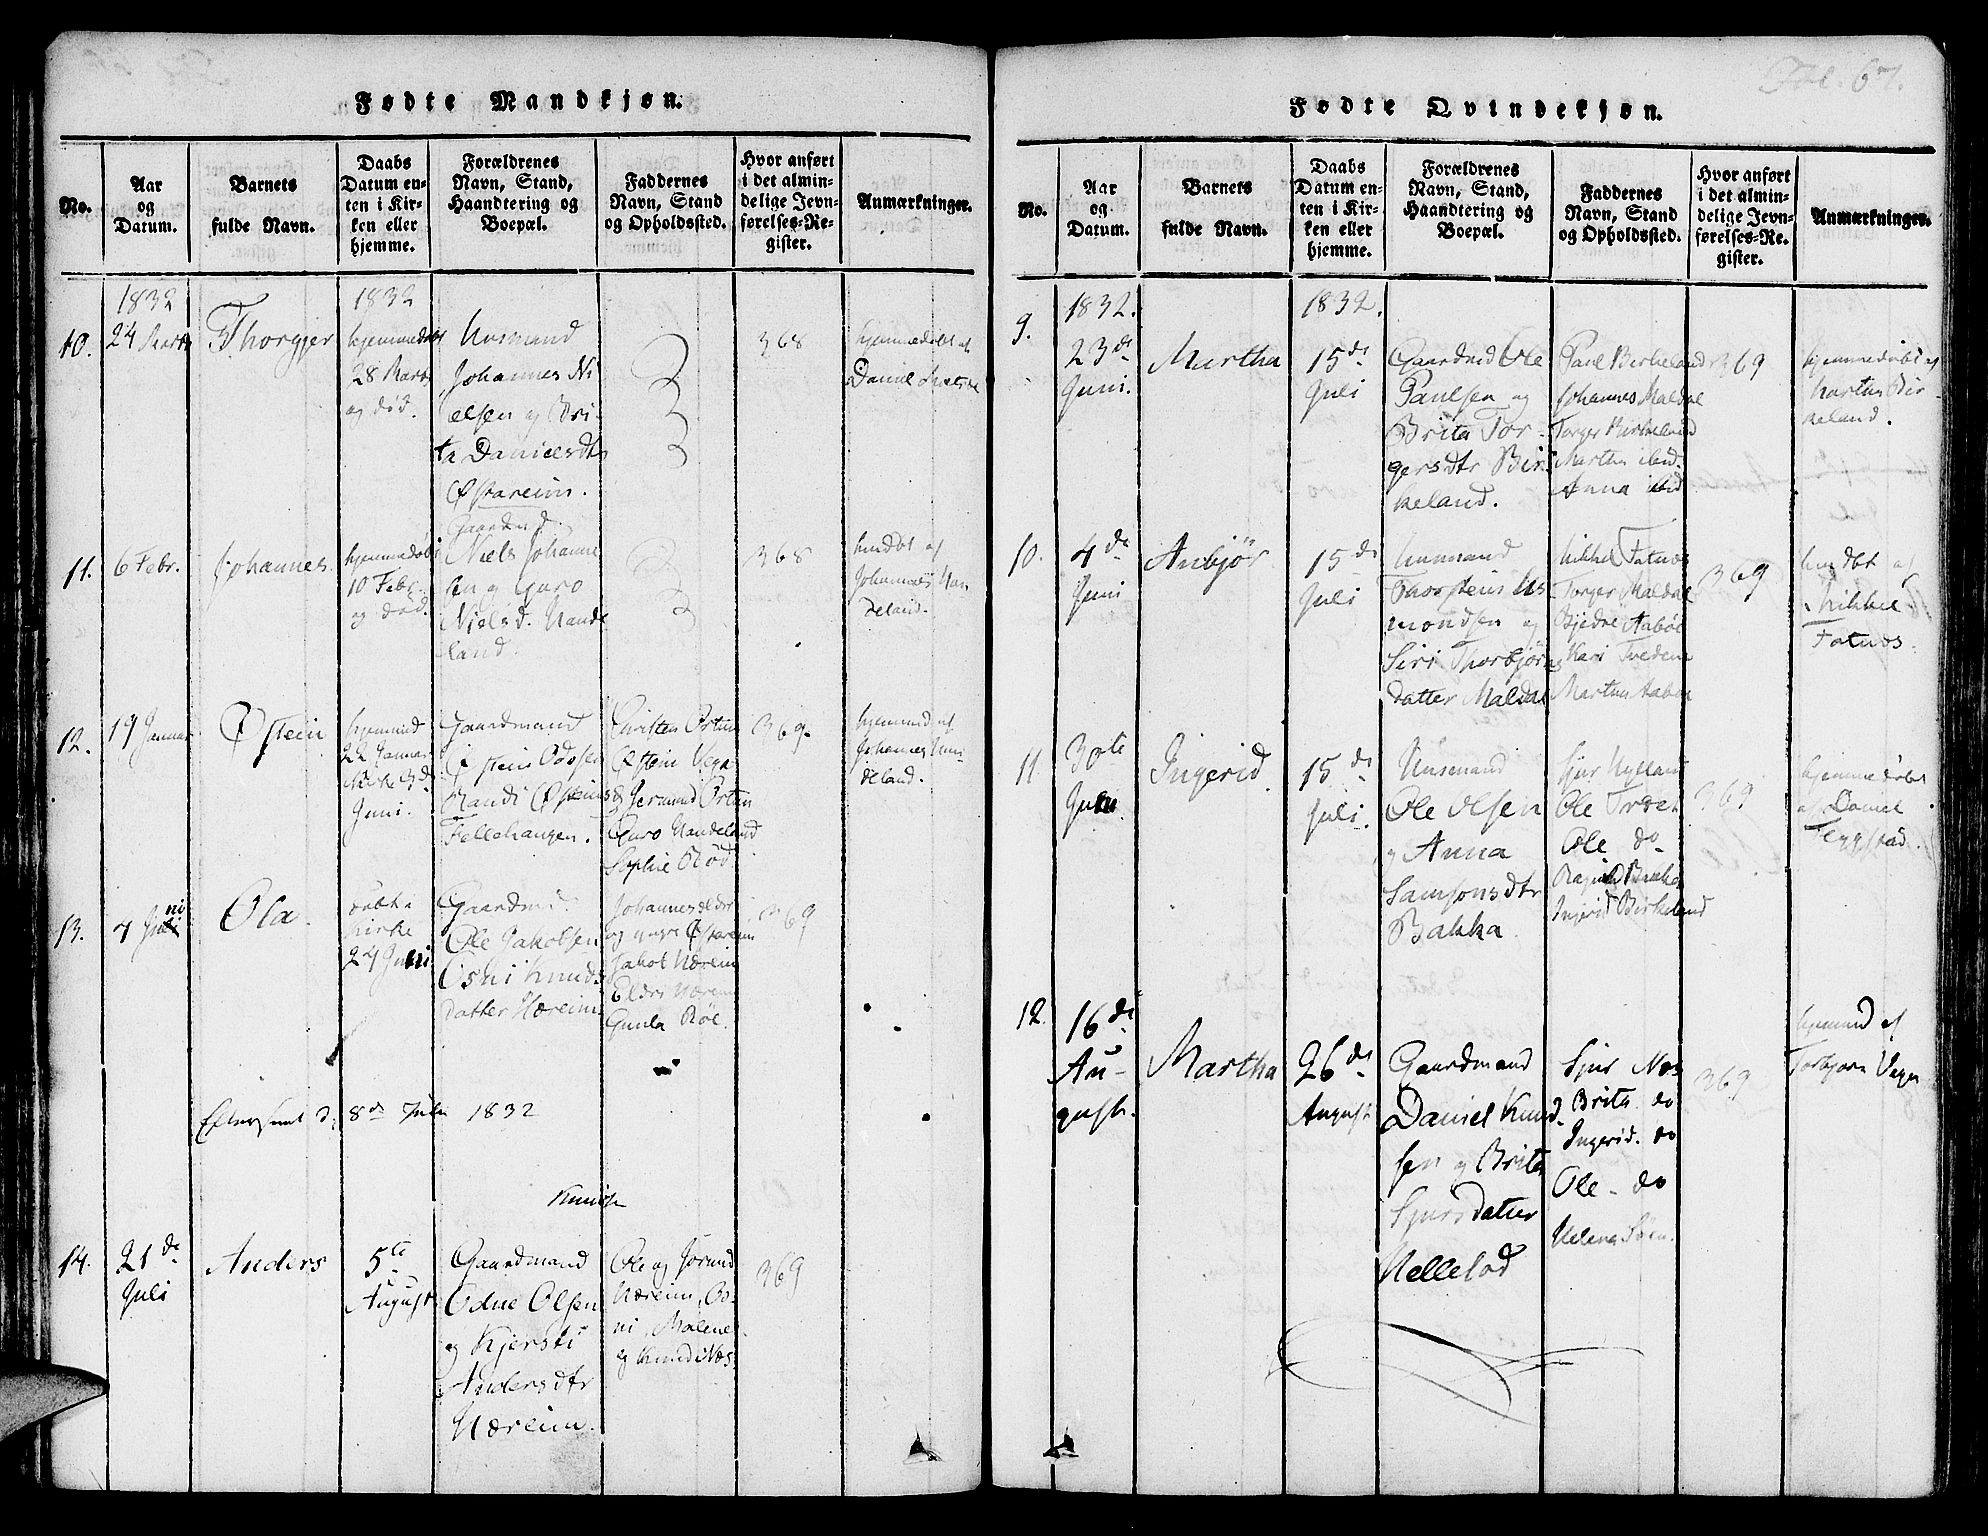 Fødte Mandkjøn.
No.
Aar
og
Datum.
Barnets
fulde Navn.
Daabs
Datum en-
ten i Kir-
ken eller
hjemme.
Forældrenes
Navn, Stand,
Haandtering og
Boepæl.
Faddernes
Navn, Stand
og Opholdssted.
Hvor anført
i det almin-
delige Jevn-
førelses-Re-
gister.
Anmærkninger.
10.
1832
24 Marts
Thorgjer
1832
hjemmedøbt
28 Marts
og død.
Husmand
Johannes Ni
elsen og Bri
ta Danielsdtr
Østareim.
368
hjemmedøbt af
Daniel
11.
6 Febr.
Johannes.
hjemmedøbt
10 Febr.
og død.
Gaardmd.
Niels Johanne
sen og Guro
Nielsd. Hande
land.
368
hmdbt af
Johannes Han
deland.
12.
19 Januar
Østein
hjemmed
22 Januar
Kirke 3d
Juni.
Gaardmand
Østein Odosen
Randi Østeinsd
Fellehaugen.
Christen Ørtun
Østein Vega
Jermund Ørtun
Guro Handeland
Sophie Rød
369.
hjemmed af
Johannes Han
deland.
13.
4 Juni
Ola.
døbt i
Kirke
24 Juni
Gaardmd.
Ole Jakobsen
Osni Knuds
datter Hæreim
Johannes ældre
og yngre Østareim
Jakob Hæreim
Eldri Hæreim
Gunla Røe.
369
Eftersent d. 8de Juli 1832
Knudsen
14.
21de
Juli
Anders
5te
August
Gaardmand
Odne Olsen
og Kjersti
Andersdtr
Hæreim.
Ole og Jorund
Hæreim, Go-
ni, Malene
og Knud Næs
369
Fol. 67.
Fødte Qvindekjøn.
No.
Aar
og
Datum.
Barnets
fulde Navn.
Daabs
Datum en-
ten i Kir-
ken eller
hjemme.
Forældrenes
Navn, Stand,
Haandtering og
Boepæl.
Faddernes
Navn, Stand
og Opholdssted.
Hvor anført
i det almin-
delige Jevn-
førelses-Re-
gister.
Anmærkninger.
9.
1832.
23de
Juni.
Martha
1832.
15de
Juli
Gaardmd Ole
Paulsen og
Brita Tor-
gersdtr Bir
keland.
Paul Birkeland
Johannes Maldal
Torger Birkeland
Martha ibid.
Anna ibid
369
hjemmedøbt af
Martha Bir
keland.
10.
4de
Juni
Anbjør
15de
Juli
Husmand
Thorstein As
mondsen og
Siri Thorbjørns
datter Maldal
Mikkel Fatnæs
Torger Maldal
Aabøe
Kari Tvedena
Martha Aabøe
369
hmdbt af
Mikkel
Fatnæs.
11.
30te
Juni
Ingerid
15de
Juli.
Husmand
Ole Olsen
og Anna
Samsonsdtr
Bakka.
Sjur Hylland
Ole Træet
Ole do
Bakka
Ingerid Birkeland
369
hjemmedøbt
af Daniel
Teggstad.
12.
16de
Au-
gust.
Martha
26de
August
Gaardmand
Daniel Knud-
sen og Brita
Sjursdatter
Helleland
Sjur Næs
Brita do
Ingerid. do
Ole - do
Helena Søen.
369
hjemmed af
Torbjørn Vega